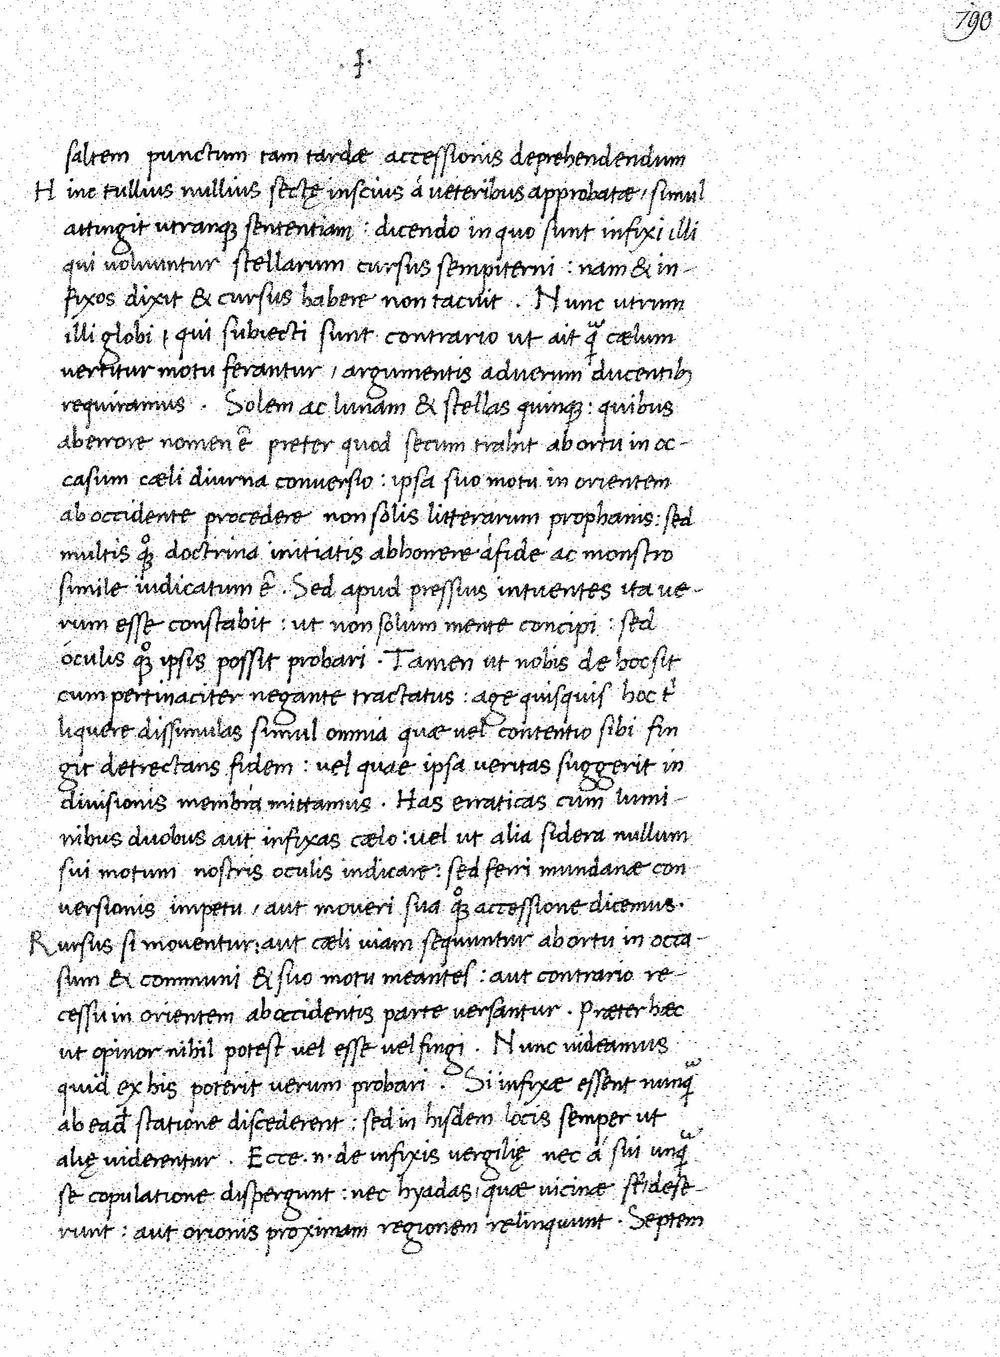 790
.I.
saltem punctum tam tardæ accessionis deprehendendum
Hinc tullius nullius sectę inscius á ueteribus approbatæ, simul
attingit utranq; sententiam : dicendo in quo sunt infixi illi
qui uoluuntur stellarum cursus sempiterni : nam & in-
fixos dixit & cursus habere non tacuit . Nunc utrum
illi globi, qui subiecti sunt contrario ut ait q̃ cælum
uertitur motu ferantur, argumentis aduerum ducentib;
requiramus . Solem ac lunam & stellas quinq; : quibus
aberrore nomen ẽ preter quod secum trahit ab ortu in oc-
casum cæli diurna conuersio : ipsa suo motu in orientem
ab occidente procedere non solis litterarum prophanis : sed
multis q̊; doctrina initiatis abhorrere á fide ac monstro
simile iudicatum ẽ . Sed apud pressius intuentes ita ue-
rum esse constabit : ut non solum mente concipi : sed
oculis q̊; ipsis possit probari . Tamen ut nobis de hoc sit
cum pertinaciter negante tractatus : age quisquis hoc t'
liquere dissimulas simul omnia quæ uel contentio sibi fin
git detrectans fidem : uel quæ ipsa ueritas suggerit in
diuisionis membra mittamus . Has erraticas cum lumi-
nibus duobus aut infixas cælo : uel ut alia sidera nullum
sui motum nostris oculis indicare : sed ferri mundanæ con
uersionis impetu, aut moueri sua q̊; accessione dicemus .
Rursus si mouentur : aut cæli uiam sequuntur ab ortu in occa-
sum & communi & suo motu meantes : aut contrario re-
cessu in orientem ab occidentis parte uersantur . Præter hæc
ut opinor nihil potest uel esse uel fingi . Nunc uideamus
quid ex his poterit uerum probari . Si infixæ essent nunq̃
ab ead̃ statione discederent : sed in hisdem locis semper ut
alię uiderentur . Ecce .n. de infixis uergilię nec á sui unq̃
se copulatione dispergunt : nec hyadas, quæ uicinæ st̃ dese-
runt : aut orionis proximam regionem relinquunt . Septem